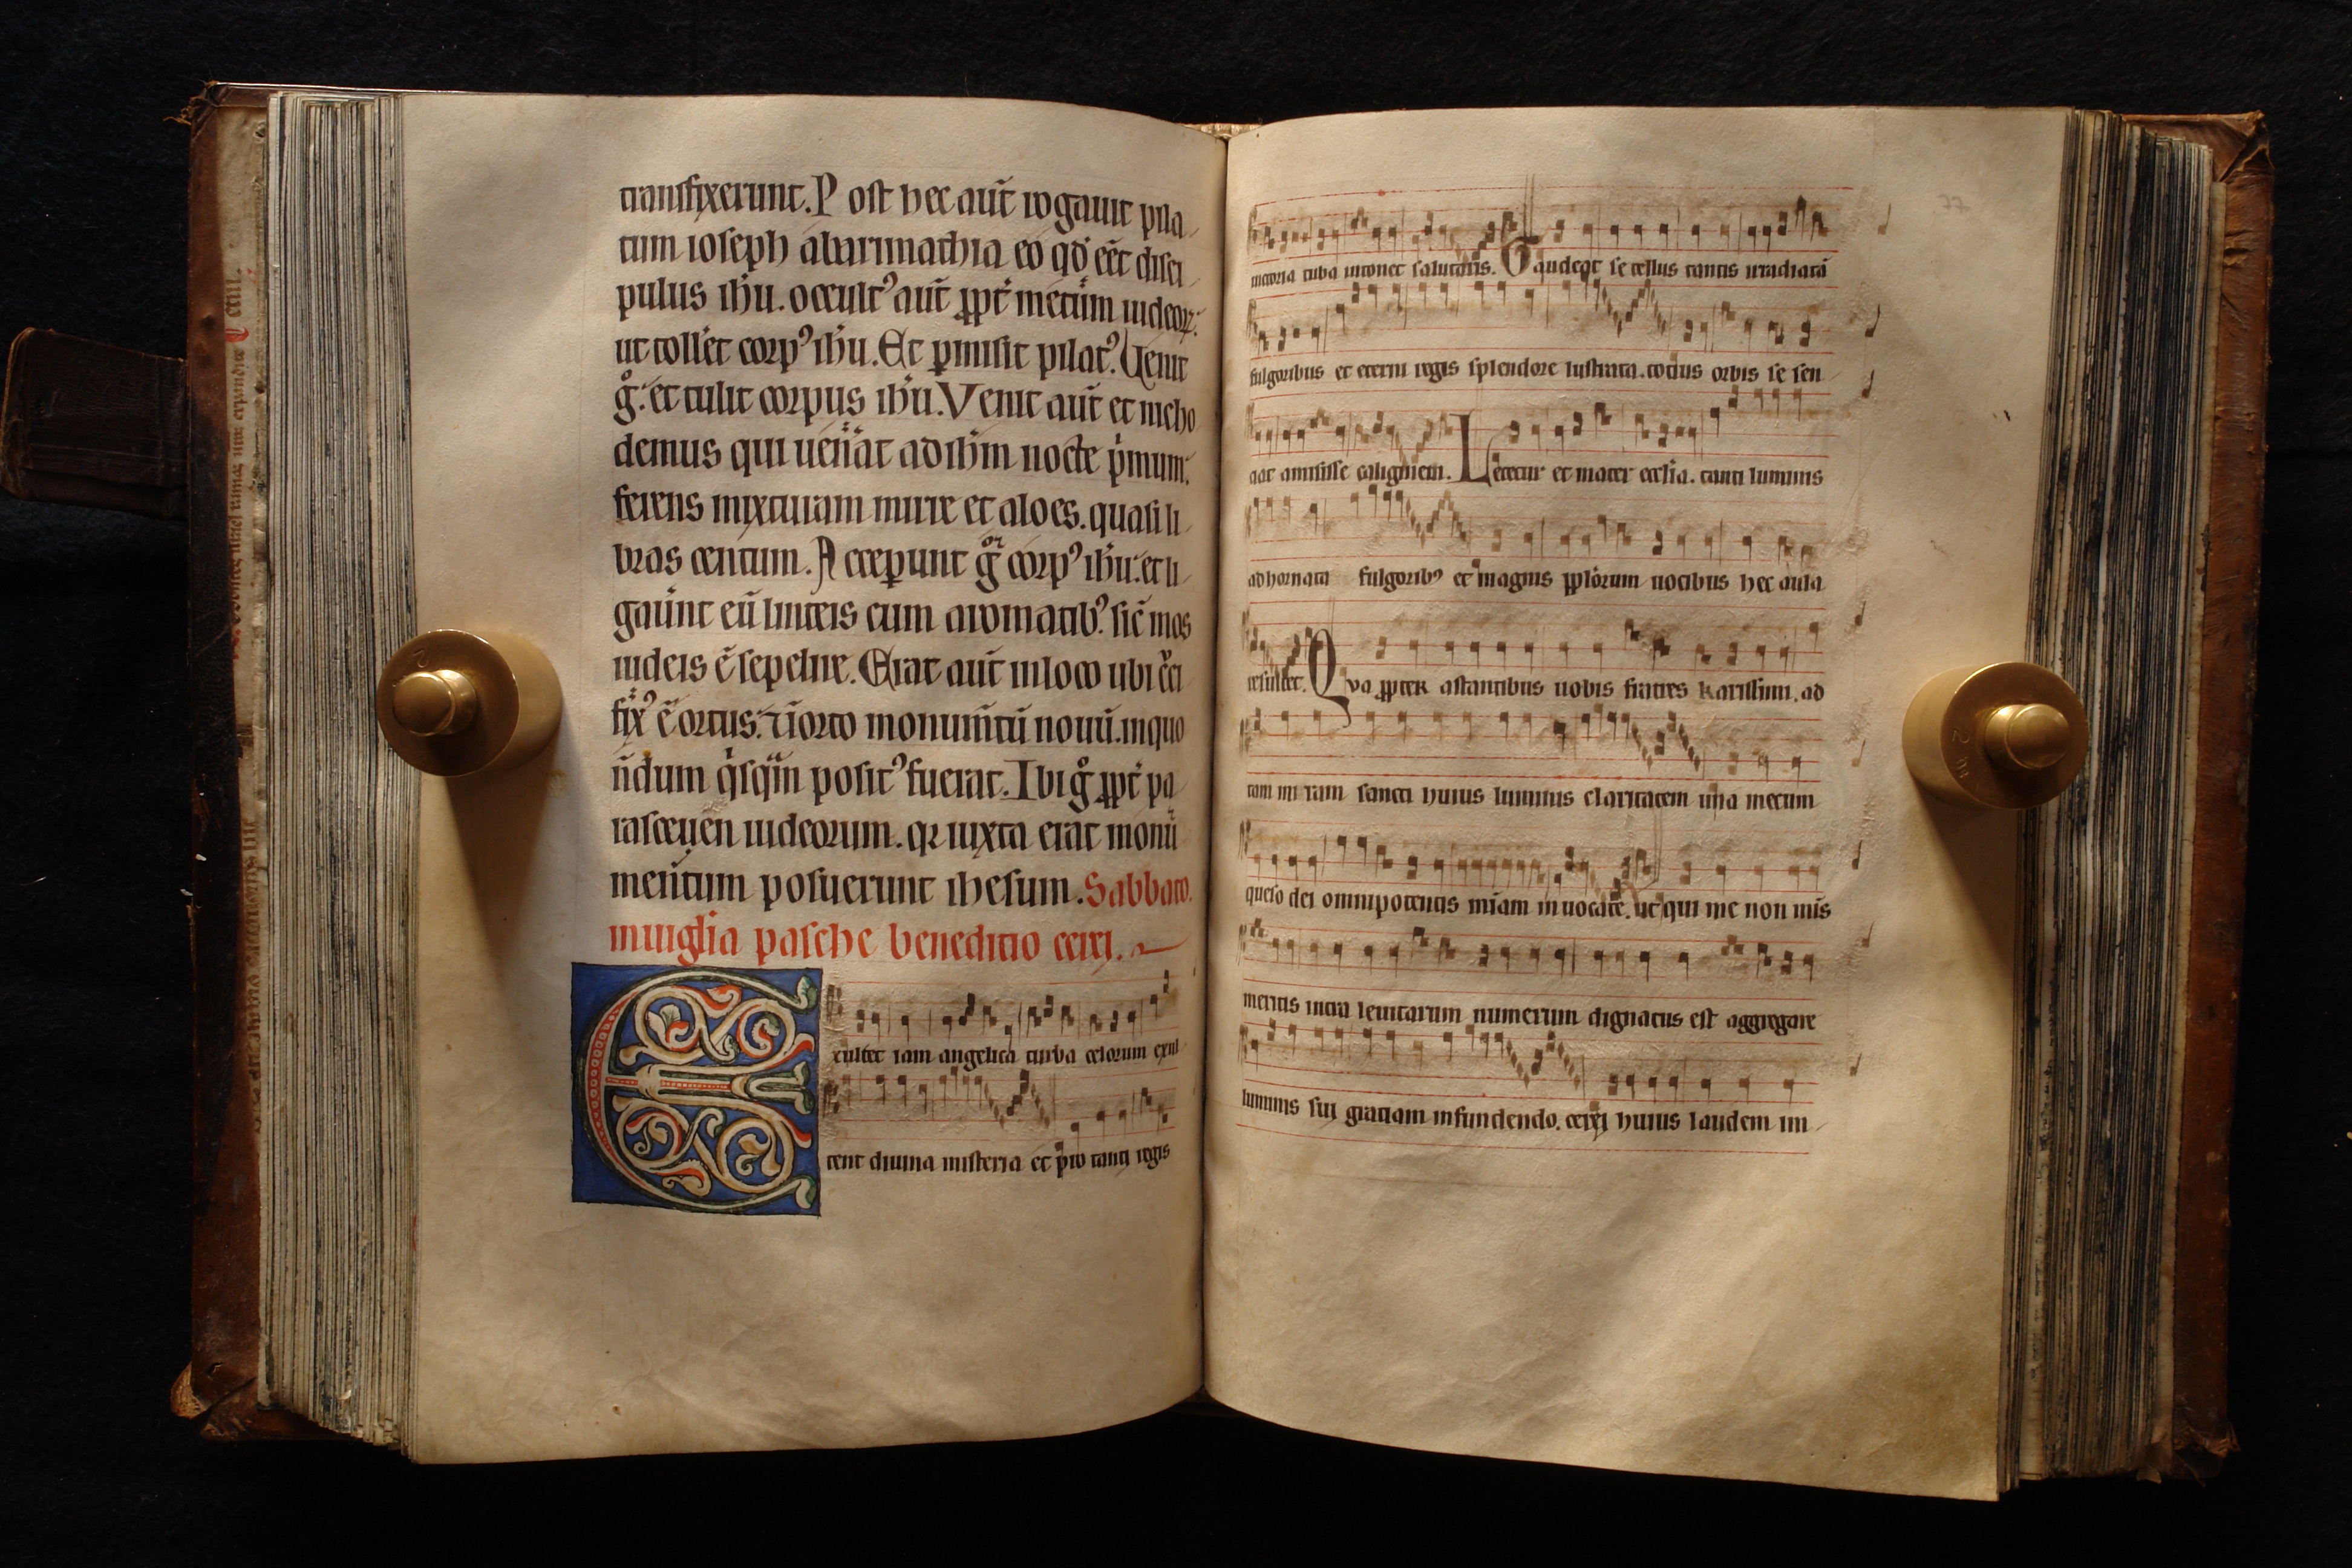 transfixerunt. Post hec aut̄ rogauit pila
tum ioseph abarimathia eo qd̄ eēt disci
pulus ihū. occult⁹ aut̄ ꝓpt̄ metūm iudeoꝝ.
ut tollēt corp⁹ ihū. Et ꝑmisit pilat⁹. Uenit
gͦ. et tulit corpus ihū. Venit aut̄ et nicho
demus qui uen̄at ad ihm̄ nocte pͥmum.
ferens mixturam mirre et aloes. quasi li
bras centum. Acceꝑunt gͦ corp⁹ ihū. et li
gaūnt eū linteis cum aromatib⁹. sic̄ mos
iudeis ē sepelire. Erat aut̄ in loco ubi cͮci
fix⁹ ē ortus. ⁊ īorto monum̄tū nouū. in quo
n̄dum qͥsqͣm posit⁹ fuerat. Ibi gͦ ꝓpt̄ pa
rasceuen iudeorum. qꝛ iuxta erat monu
men̄tum posuerunt ihesum. Sabbato.
in uiglia pasche benedictio cerei.
Exultet iam angelica turba celorum exul
tent diuina misteria et pͬo tanti regis
uictoria tuba intonet salutaris. Gaudeat se tellus tantis irradiatā
fulgoribus et eterni regis splendore lustrata. totius orbis se sen
tiat amisisse caliginem. Letetur et mater ecclīa. tanti luminis
adhornata fulgorib⁹ et magnis ꝓplōrum uocibus hec aula
resultet. Qua ꝓpter astantibus uobis fratres karissimi. ad
tam miram sancti huius luminis claritatem una mecum
queso dei omnipotentis mīam inuocate. ut qui me non mīs
meritis intra leuitarum numerum dignatus est aggregare
luminis sui gratiam infundendo. cerei huius laudem im